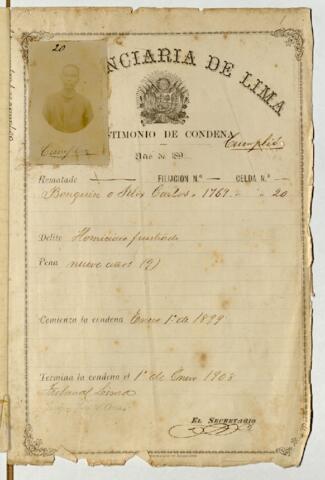 20
NCIARIA DE LIMA
TIMONIO DE CONDENA
Cumplió
Año de 189
Rematado FILIACIÓN N.º CELDA N.º
o Félix Carlos 1769 20
Delito Homicidio frustrado
Pena nueve años (9)
Comienza la condena Enero 1º de 1899
Termina la condena el 1º de Enero 1908
EL SECRETARIO